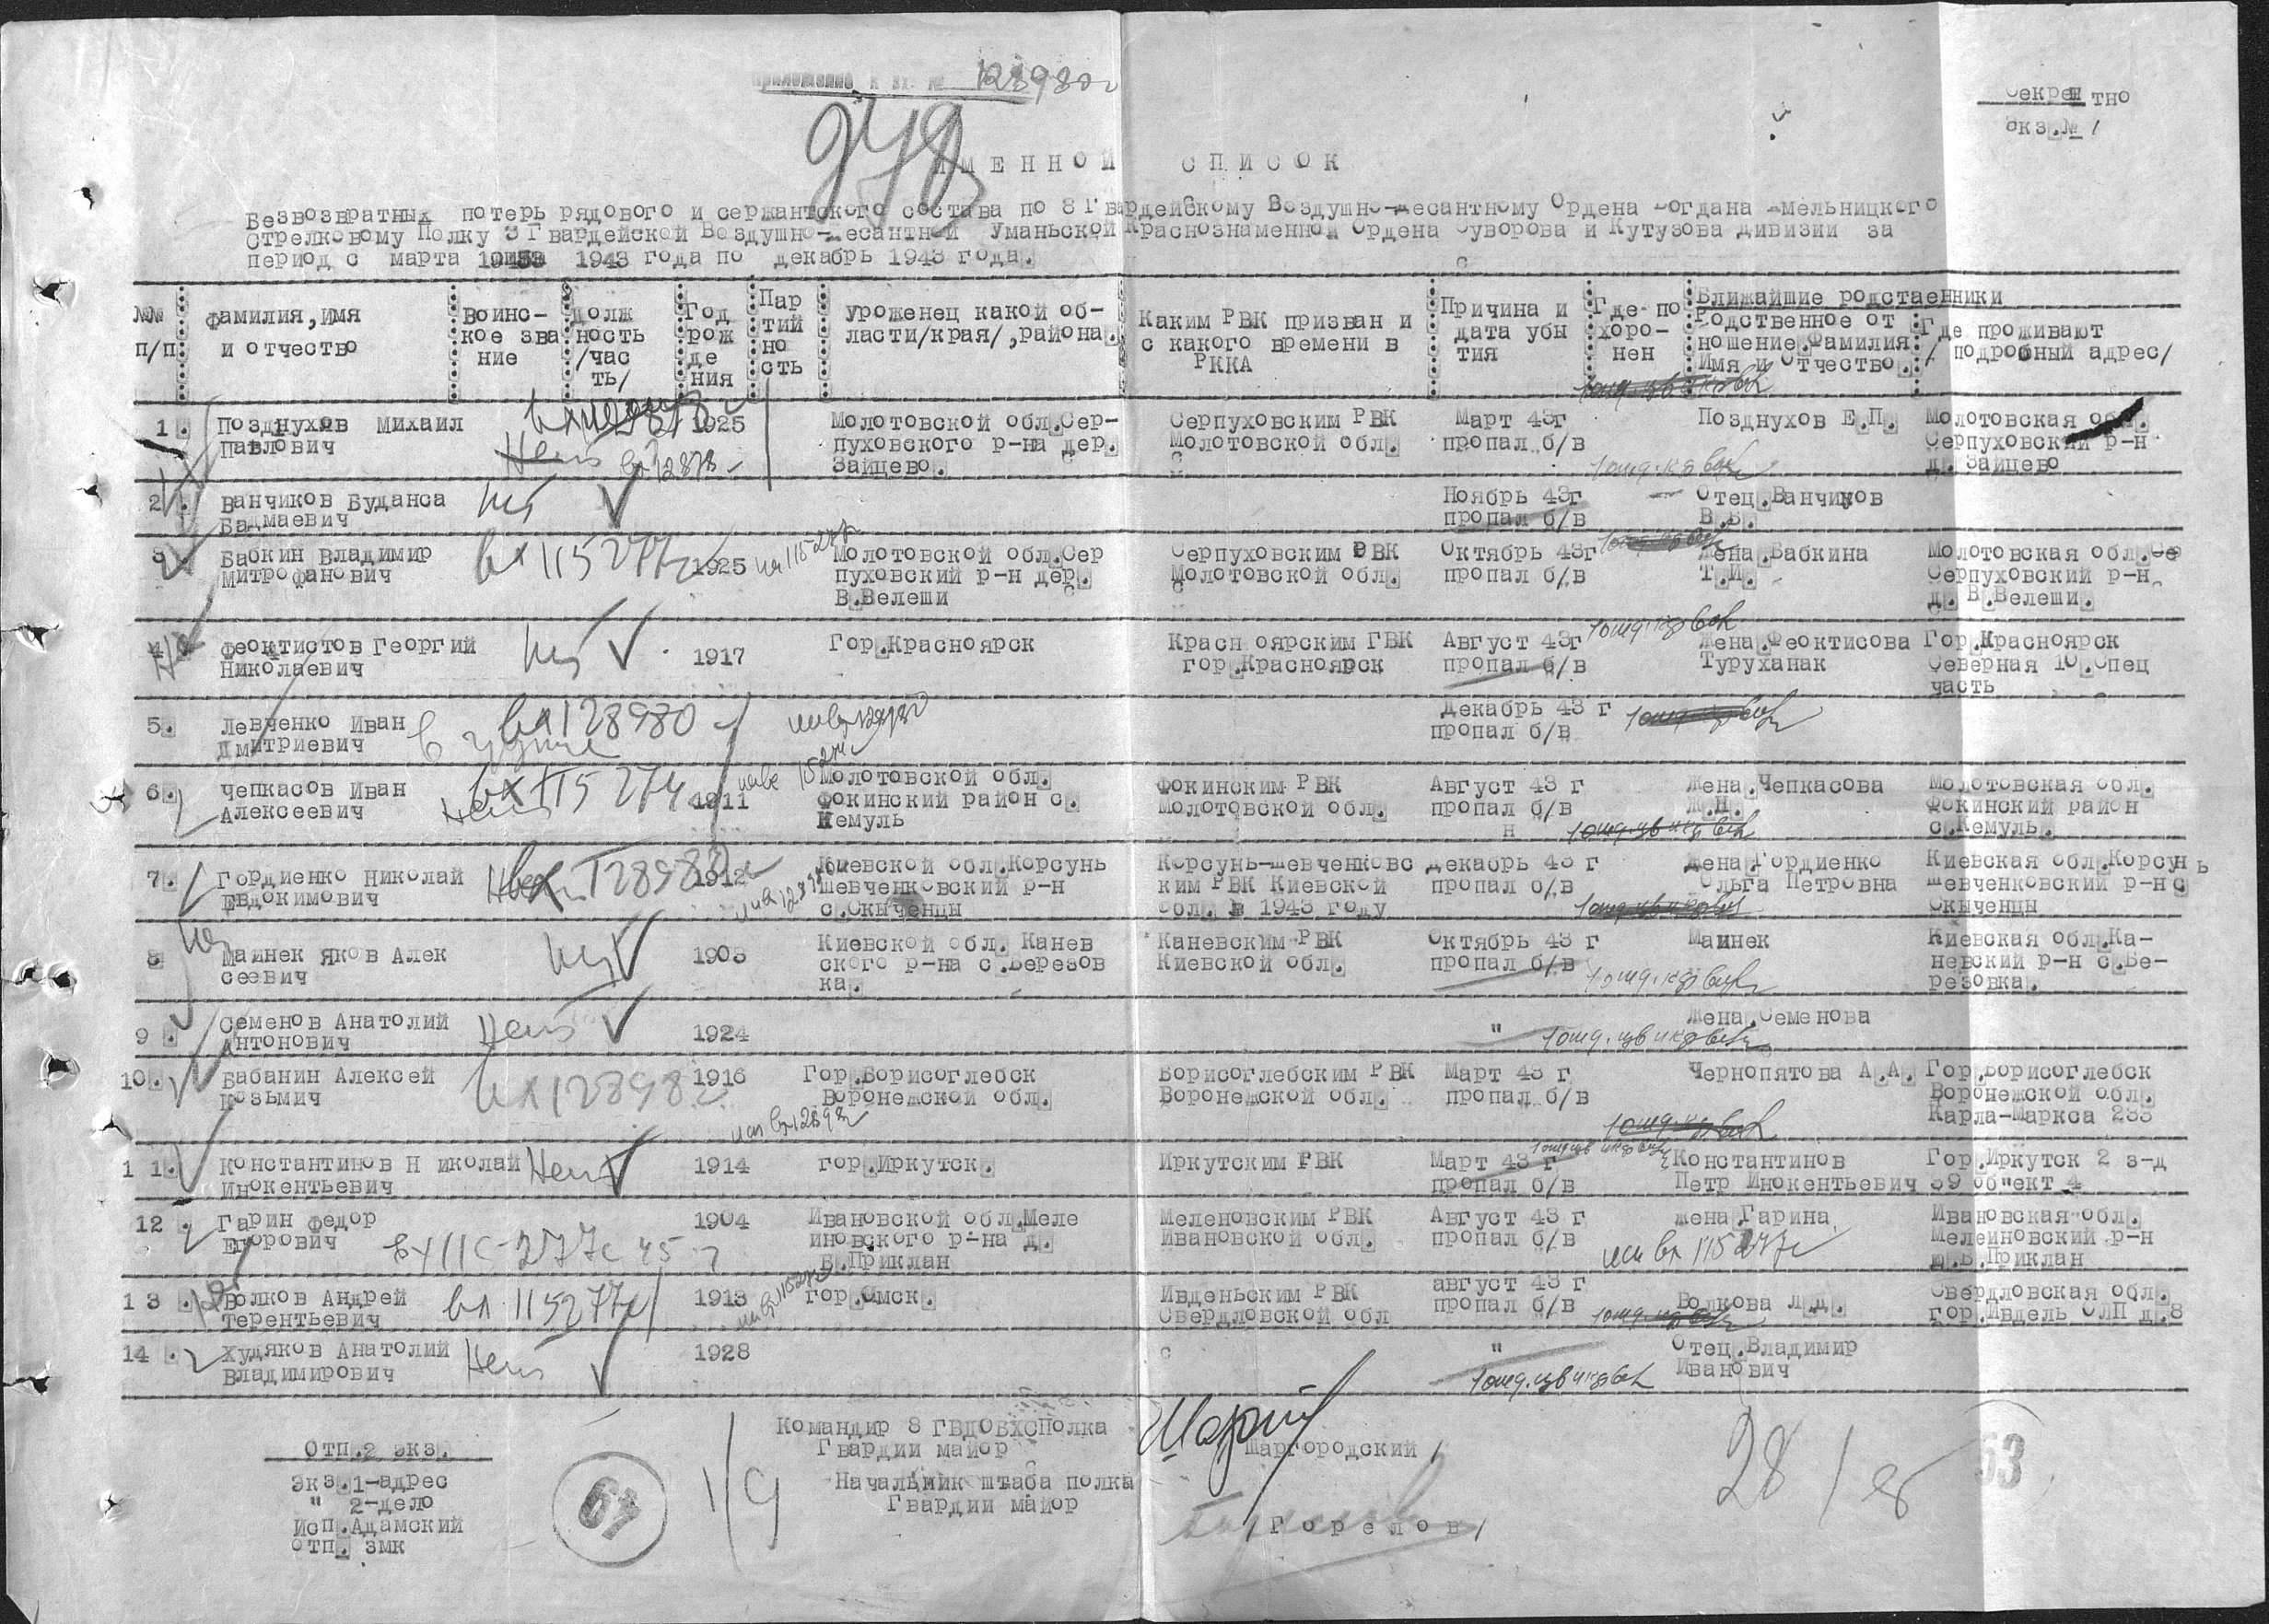 Приложение к вх. № 128980с
948
Секретно
экз.№ 1
ИМЕННОЙ СПИСОК
Безвозвратных потерь рядового и сержантского состава по 8 Гвардейскому Воздушно-Десантному Ордена Богдана Хмельницкого
Стрелковому Полку 3 Гвардейской Воздушно-Десантной Уманьской Краснознаменной Ордена Суворова и Кутузова дивизии за
период с марта 1943 года по декабрь 1943 года.
№№ п/п
Фамилия,имя и отчество
Воинс-кое зва ние
Долж ность /час ть/
Год рож де ния
Пар тий но сть
Уроженец какой об-ласти/края/,района.
Каким РВК призван и с какого времени в РККА
Причина и дата убы тия
Где по хоро-нен
Ближайшие родстаенники
Родственное от ношение.Фамилия Имя и Отчество.
Где проживают / подробный адрес/
1. Позднухов Михаил 1925 Молотовской обл.Сер- Серпуховским РВК Март 43г Позднухов Е.П. Молотовская обл.
Павлович пуховского р-на дер. Молотовской обл. пропал б/в Серпуховский р-н
Нет вх 12878 Зайцево. д. Зайцево
2. Ванчиков Буданса Нет Ноябрь 43г Отец.Ванчиков
Бадмаевич пропал б/в В.Б.
3 Бабкин Владимир вх 115277с 1925 Молотовской обл.Сер Серпуховским РВК Октябрь 43г Жена.Бабкина Молотовская обл.Се
Митрофанович пуховский р-н дер. Молотовской обл. пропал б/в Т.И. Серпуховский р-н
В.Велеши д. В.Велеши.
4. Феоктистов Георгий Нет 1917 Гор.Красноярск Красн оярским ГВК Август 43г Жена.Феоктисова Гор.Красноярск
Николаевич гор.Красноярск пропал б/в Туруханак Северная 10.Спец
часть
5. Левченко Иван вх 128980 Декабрь 43 г
Дмитриевич пропал б/в
6. Чепкасов Иван вх 115274 1911 Молотовской обл. Фокинским РВК Август 43 г Жена.Чепкасова Молотовская обл.
Алексеевич Нет Фокинский район с. Молотовской обл. пропал б/в Ж.Н. Фокинский район
Кемуль с.Кемуль.
7. Гордиенко Николай 128980с 1912 Киевской обл.Корсунь Корсунь-Шевченковс декабрь 43 г Жена.Гордиенко Киевская обл.Корсунь
Евдокимович Шевченковский р-н ким РВК Киевской пропал б/в Ольга Петровна Шевченковский р-н с
с.Скыченцы обл. в 1943 году Скыченцы
8 Маинек Яков Алек Нет 1903 Киевской обл. Канев Каневским РВК Октябрь 43 г Маинек Киевская обл.Ка-
сеевич ского р-на с.Березов Киевской обл. пропал б/в невский р-н с.Бе-
ка. резовка.
9. Семенов Анатолий Нет 1924 " Жена.Семенова
Антонович
10. Бабанин Алексей вх 128982 1916 Гор.Борисоглебск Борисоглебским РВК Март 43 г Чернопятова А.А. Гор.Борисоглебск
Козьмич Воронежской обл. Воронежской обл. пропал б/в Воронежской обл.
Карла-Маркса 233
11. Константинов Н иколай Нет 1914 гор.Иркутск. Иркутским РВК Март 43 г Константинов Гор.Иркутск 2 з-д
Инокентьевич пропал б/в Петр Инокентьевич 39 об"ект 4
12. Гарин Федор 1904 Ивановской обл.Меле Меленовским РВК Август 43 г жена.Гарина Ивановская обл.
Егорович иновского р-на д. Ивановской обл. пропал б/в Мелеиновский р-н
В.Приклан д.В.Приклан
13. Волков Андрей вх 115277с 1913 гор.Омск. Ивденьским РВК август 43 г Волкова Л.Д. Свердловская обл.
Терентьевич Свердловской обл пропал б/в гор.Ивдель ОЛП д.8
14. Худяков Анатолий Нет 1928 " Отец.Владимир
Владимирович Иванович
Командир 8 ГВДОБХСПолка
Гвардии майор /Шаргородский/
Начальник штаба полка
Гвардии майор /Горелов/
Отп.2 экз.
Экз.1-адрес
" 2-дело
Исп.Адамский
отп. змк
53